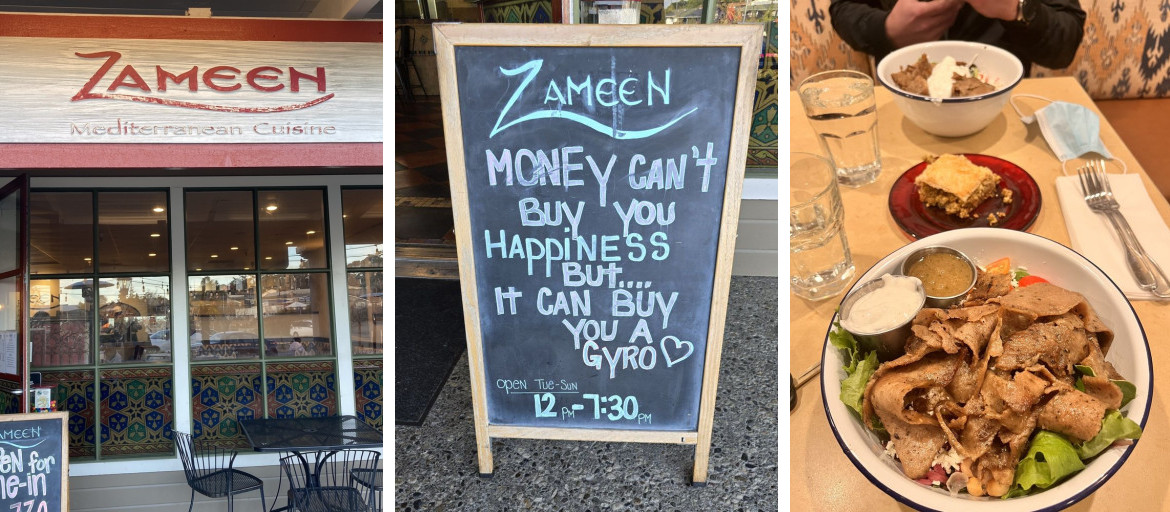 ZAMEEN
Mediterranean Cuisine
ZAMEEN
MONEY CAN't
BUY YOU
HAPPiNESS
BUt....
It CAN BUY
YOU A
GYRO
OPEN TUE-SUN
12 PM-7:30PM